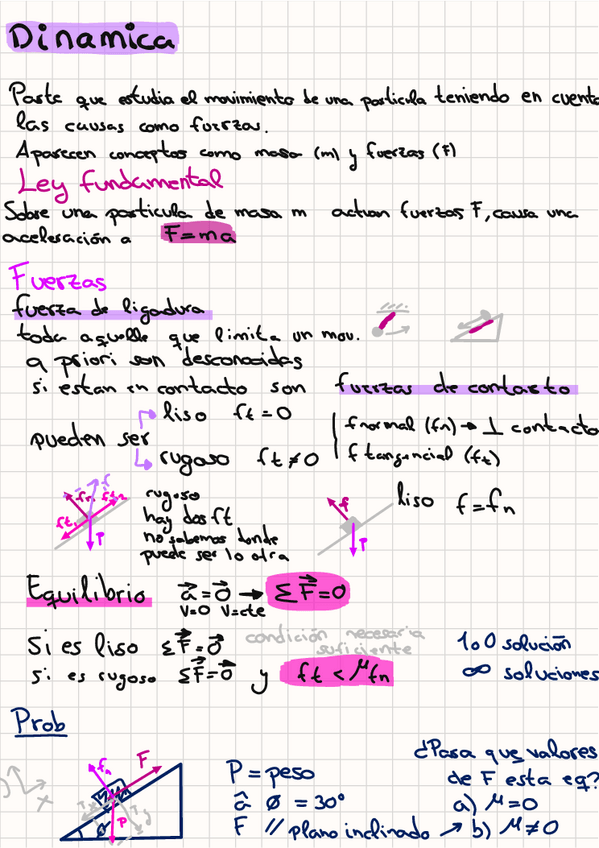 Dinamica
Parte que estudia el movimiento de una particula teniendo en cuenta
las causas como fuerzas.
Aparecen conceptos como masa (m) y fuerzas (F)
Ley fundamental
Sobre una particula de masa m actuan fuerzas F, causa una
aceleración a F=ma
Fuerzas
fuerza de ligadura
toda aquella que limita un mov.
a priori son desconocidas
si estan en contacto son fuerzas de contacto
pueden ser
liso ft = 0
rugoso ft ≠ 0
fnormal (fn) → ⊥ contacto
f tangencial (ft)
fn f ft2
ft1
P
rugoso
hay dos ft
no sabemos donde
puede ser lo otra
f
P
liso f = fn
Equilibrio a⃗ = 0⃗ → ΣF⃗=0
v=0 v=cte
Si es liso ΣF⃗=0⃗ condición necesaria
suficiente
1 o 0 solución
si es rugoso ΣF⃗=0⃗ y ft < μfn ∞ soluciones
Prob
fn F
P
x
ø
P = peso
â ø = 30°
F // plano inclinado →
¿Pasa que valores
de F esta eq?
a) μ=0
b) μ≠0